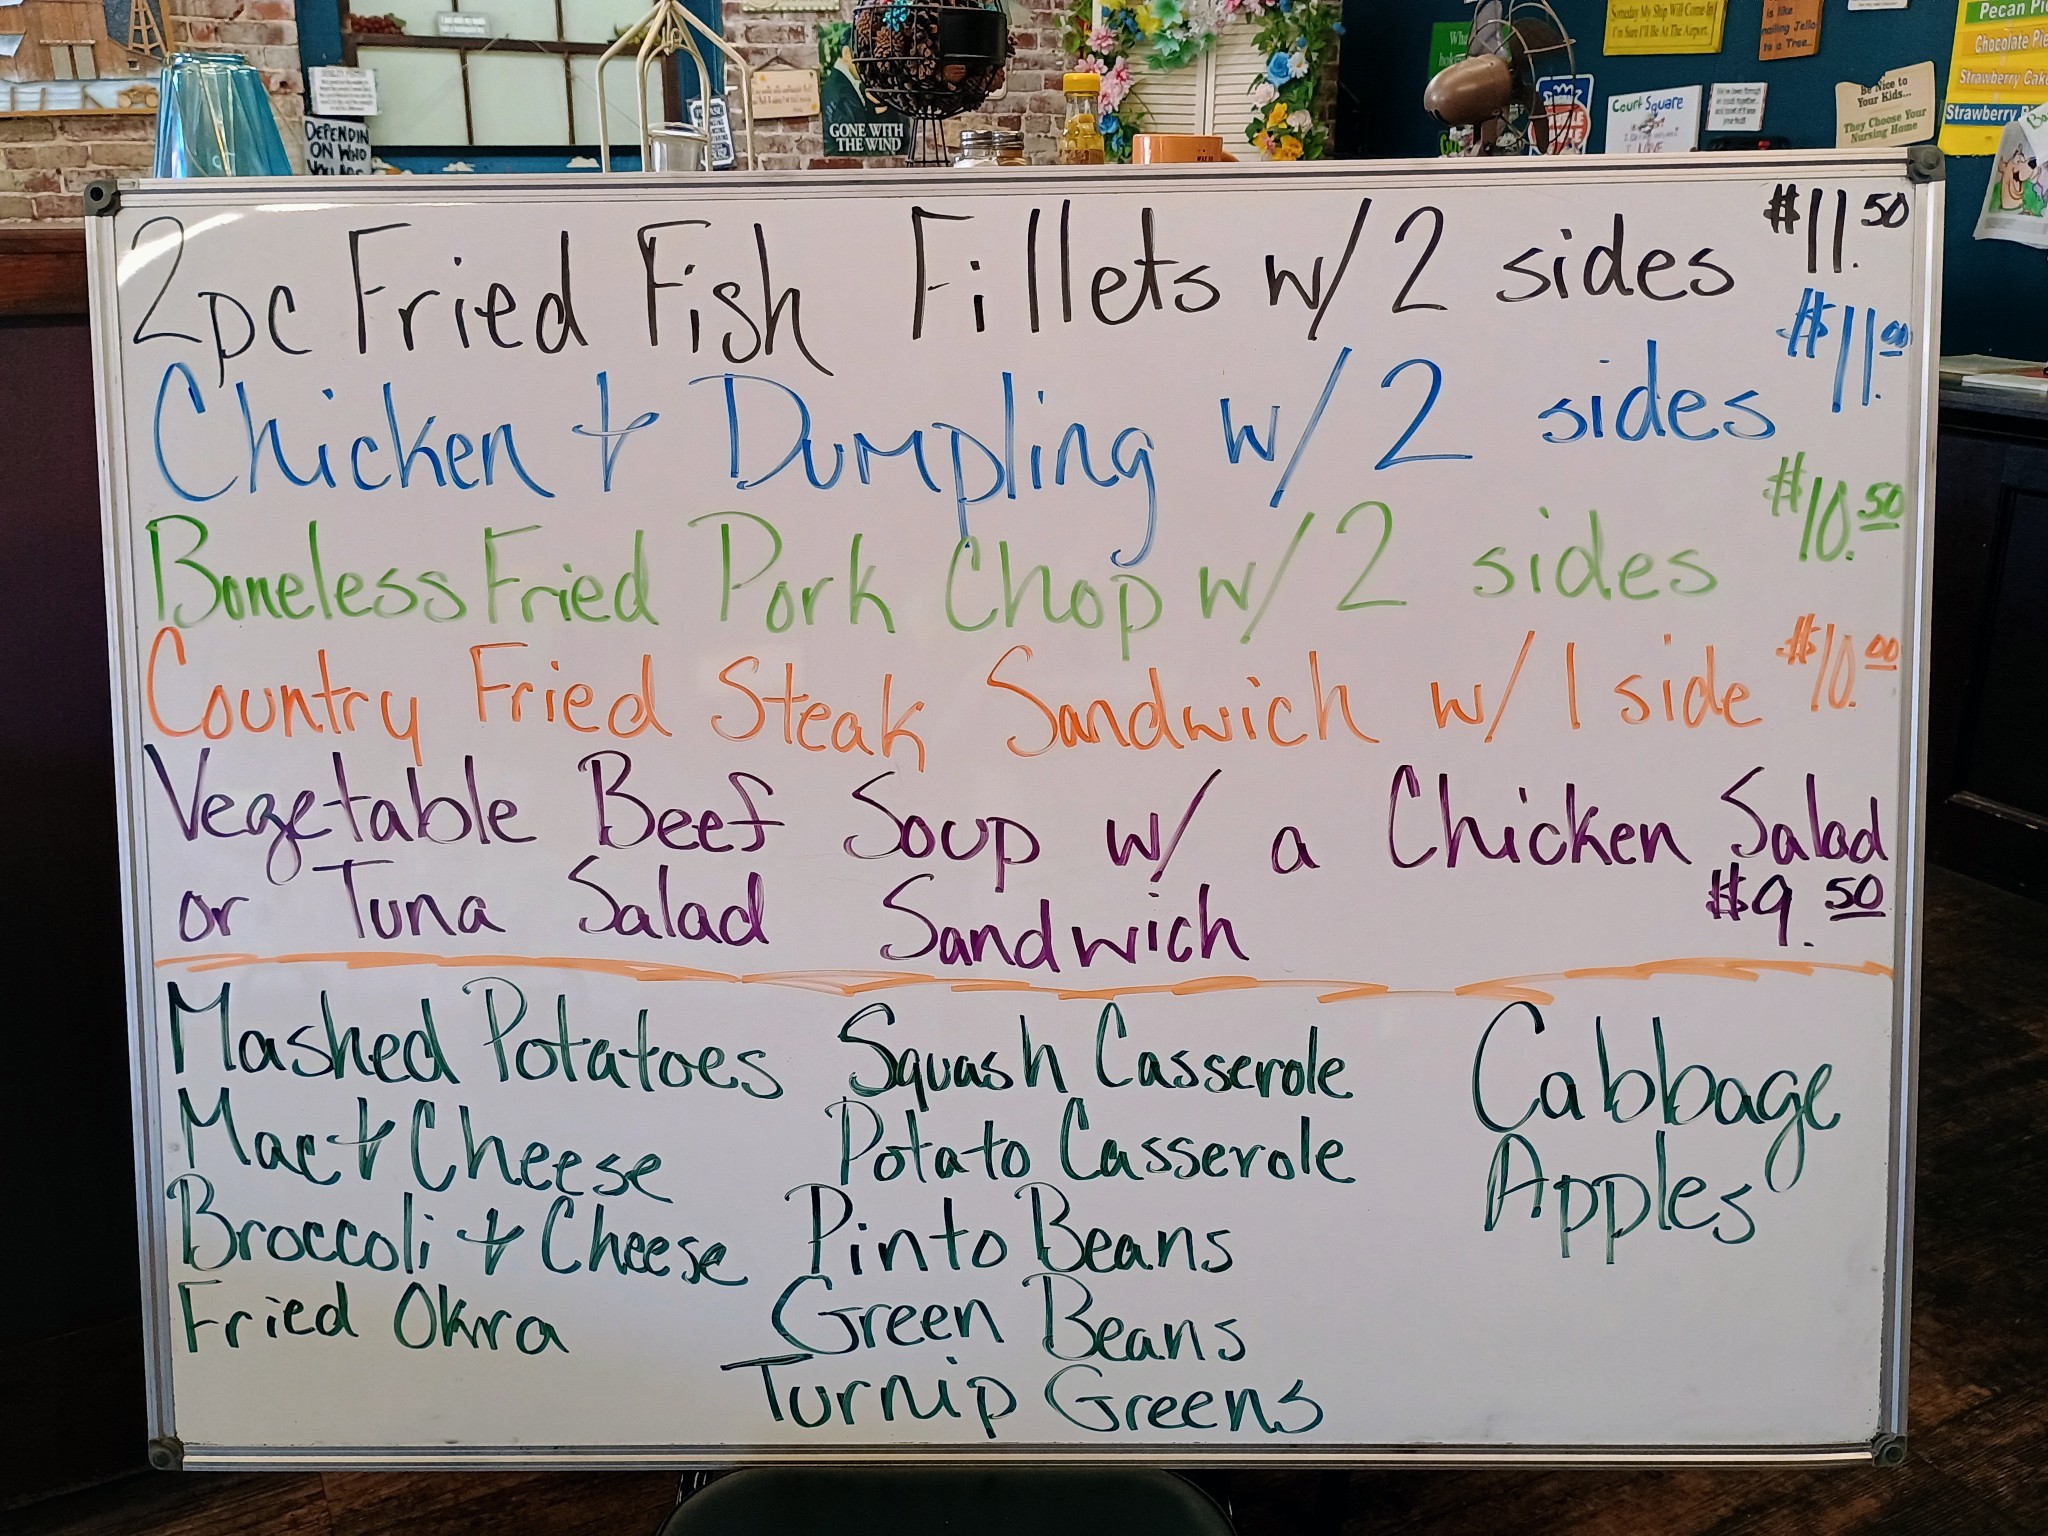 DEPENDIN
ON WHO
GONE WITH
THE WIND
Someday My Ship Will Come In
I'm Sure I'll Be At The Airport.
is like
nailing Jello
to a Tree...
Court Square
I LOVE
Be Nice to
Your Kids...
They Choose Your
Nursing Home
Pecan Pie
Chocolate Pie
Strawberry Cake
Strawberry
2pc Fried Fish Fillets w/ 2 sides $11.50
Chicken + Dumpling w/ 2 sides $11.00
Boneless Fried Pork Chop w/ 2 sides $10.50
Country Fried Steak Sandwich w/ 1 side $10.00
Vegetable Beef Soup w/ a Chicken Salad
or Tuna Salad Sandwich $9.50
Mashed Potatoes Squash Casserole Cabbage
Mac + Cheese Potato Casserole Apples
Broccoli + Cheese Pinto Beans
Fried Okra Green Beans
Turnip Greens